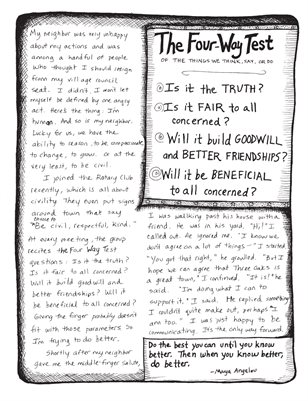 My neighbor was very unhappy
about my actions and was
among a handful of people
who thought I should resign
from my village council
seat. I didn't. I won't let
myself be defined by one angry
act. Here's the thing. I'm
human. And so is my neighbor.
Lucky for us, we have the
ability to reason, to be compassionate,
to change, to grow. Or at the
very least, to be civil.
I joined the Rotary Club
recently, which is all about
civility. They even put signs
around town that say
choose to
"Be civil, respectful, kind."
At every meeting, the group
recites the Four Way Test
questions: Is it the truth?
Is it fair to all concerned?
Will it build goodwill and
better friendships? Will it
be beneficial to all concerned?
Giving the finger probably doesn't
fit with those parameters. So
I'm trying to do better.
Shortly after my neighbor
gave me the middle-finger salute,
The Four-Way Test
OF THE THINGS WE THINK, SAY, OR DO
① Is it the TRUTH?
② Is it FAIR to all
concerned?
③ Will it build GOODWILL
and BETTER FRIENDSHIPS?
④ Will it be BENEFICIAL
to all concerned?
I was walking past his house with a
friend. He was in his yard. "Hi!" I
called out. He ignored me. "I know we
don't agree on a lot of things-" I started
"You got that right," he growled. "But I
hope we can agree that Three Oaks is
a great town," I continued. "It is!" he
said. "I'm doing what I can to
support it," I said. He replied something
I couldn't quite make out, perhaps "I
am too." I was just happy to be
communicating. It's the only way forward.
Do the best you can until you know
better. Then when you know better,
do better.
-Maya Angelou